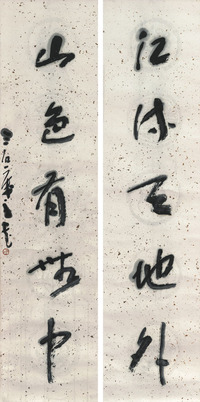 江流天地外
山色有無中